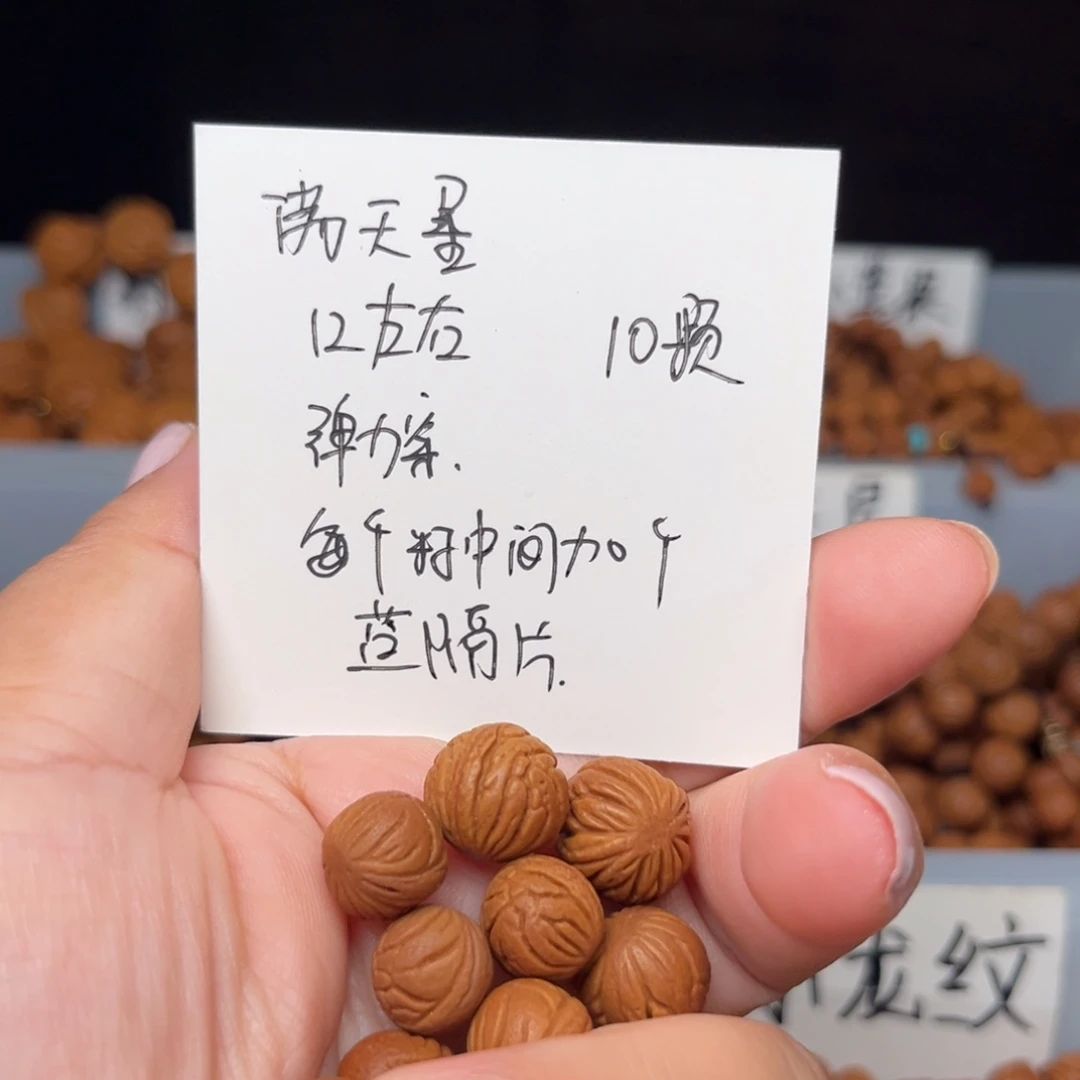 满天星
12左右 10颗
弹力穿.
每个籽中间加个
蓝隔片.
龙纹